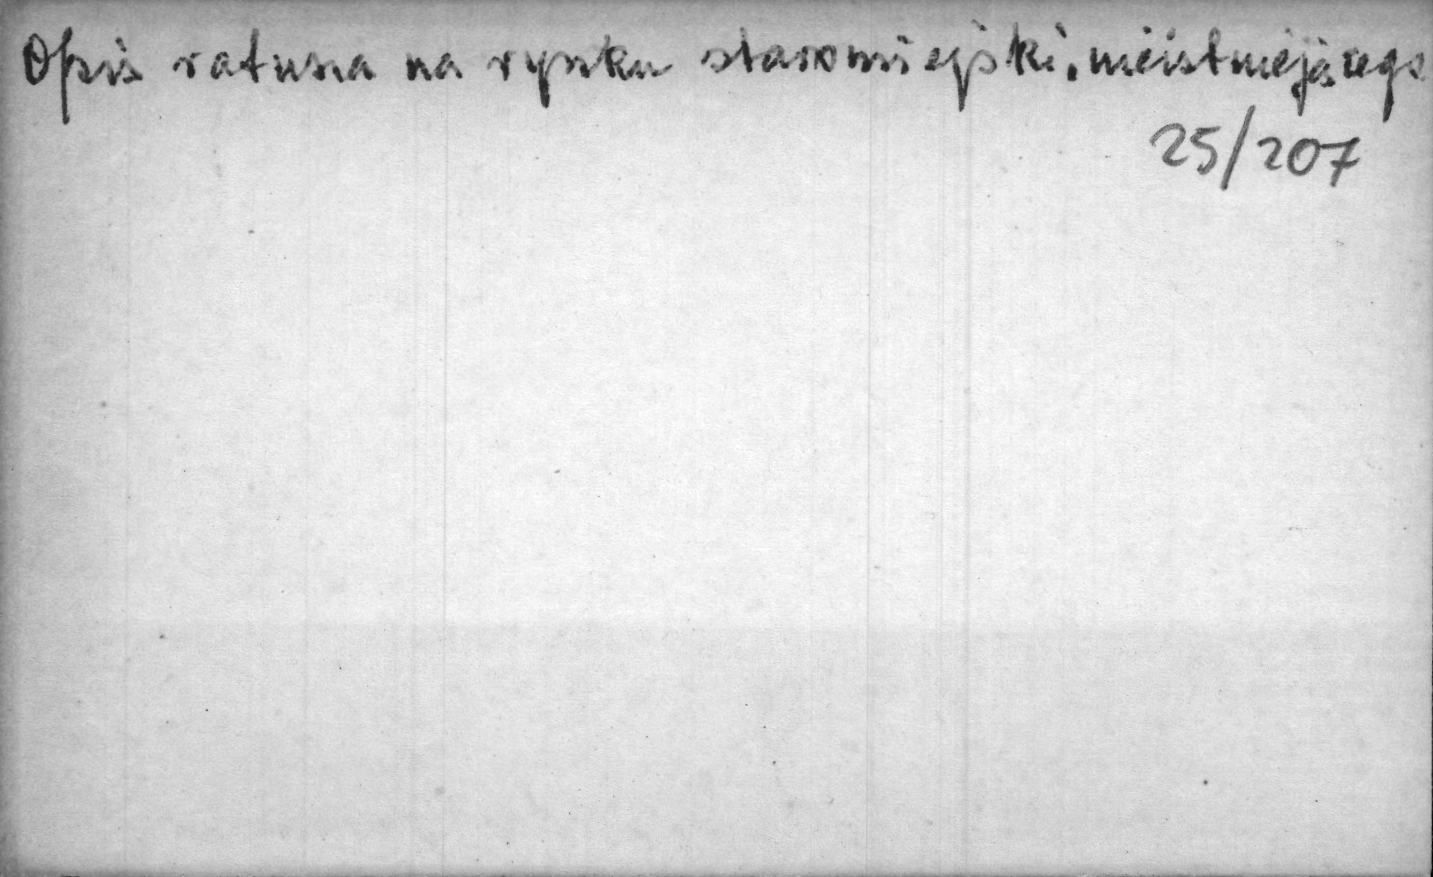 Opis ratusza na rynku staromiejski. nieistniejącego
25/207